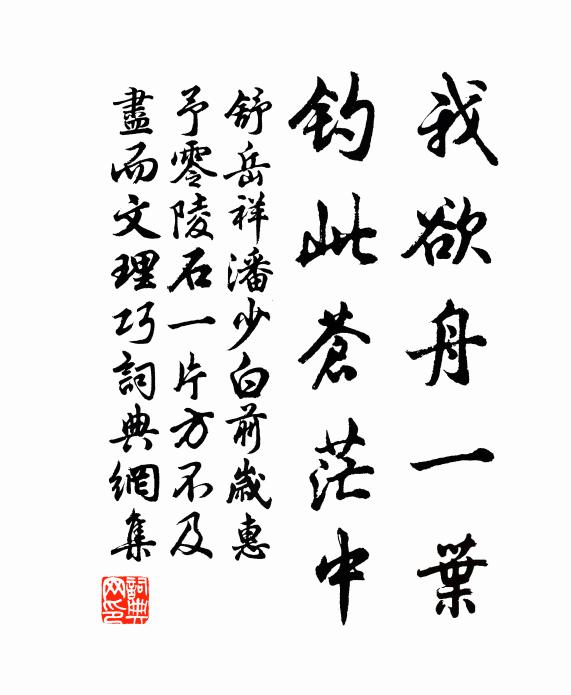 我欲舟一葉
釣此蒼茫中
舒岳祥潘少白前歲惠
予零陵石一片方不及
盡而文理巧詞典網集
詞典